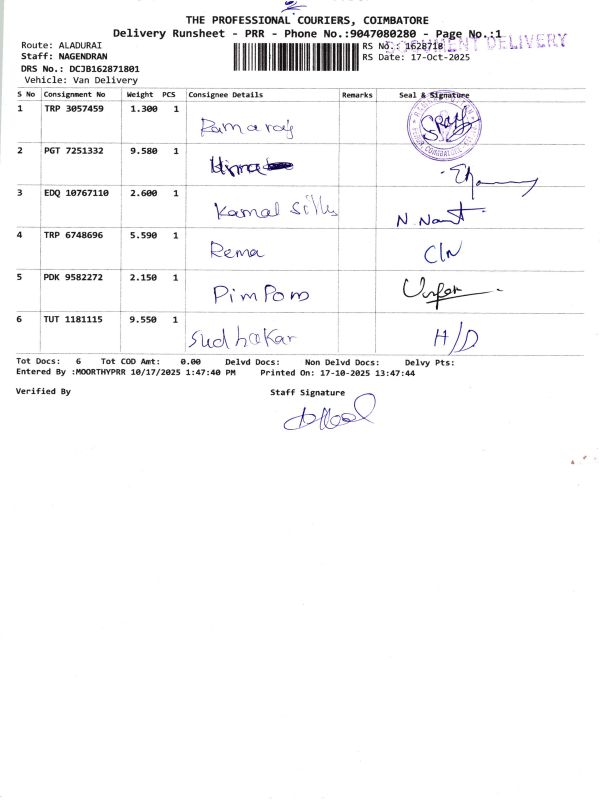 THE PROFESSIONAL COURIERS, COIMBATORE
Delivery Runsheet - PRR - Phone No.:9047080280 - Page No.:1
DOCUMENT DELIVERY
Route: ALADURAI
RS No.: 1628718
Staff: NAGENDRAN
RS Date: 17-Oct-2025
DRS No.: DCJB162871801
Vehicle: Van Delivery
S No Consignment No Weight PCS Consignee Details Remarks Seal & Signature
1 TRP 3057459 1.300 1 Ramaraj
2 PGT 7251332 9.580 1
3 EDQ 10767110 2.600 1 Kamal Silks
4 TRP 6748696 5.590 1 Rema C/N
5 PDK 9582272 2.150 1 Pim Pom
6 TUT 1181115 9.550 1 Sudhakar H/D
Tot Docs: 6 Tot COD Amt: 0.00 Delvd Docs: Non Delvd Docs: Delvy Pts:
Entered By :MOORTHYPRR 10/17/2025 1:47:40 PM Printed On: 17-10-2025 13:47:44
Verified By Staff Signature